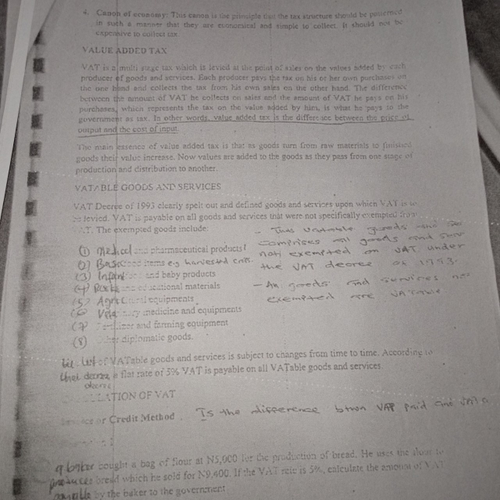 4. Canon of economy: This canon is the principle that the tax structure should be patterned
in such a manner that they are economical and simple to collect. It should not be
expensive to collect tax
VALUE ADDED TAX
VAT is a multi stage tax which is levied at the point of sales on the values added by each
producer of goods and services. Each producer pays the tax on his or her own purchases on
the one hand and collects the tax from his own sales on the other hand. The difference
between the amount of VAT he collects on sales and the amount of VAT he pays on his
purchases, which represents the tax on the value added by him, is what he pays to the
government as tax. In other words, value added tax is the difference between the price of
output and the cost of input.
The main essence of value added tax is that as goods turn from raw materials to finished
goods their value increase. Now values are added to the goods as they pass from one stage of
production and distribution to another.
VATABLE GOODS AND SERVICES
VAT Decree of 1993 clearly spelt out and defined goods and services upon which VAT is to
be levied. VAT is payable on all goods and services that were not specifically exempted from
VAT. The exempted goods include:
(1) Medical and pharmaceutical products
(2) Basic items eg harvested
(3) Infant and baby products
(4) materials
(5) equipments
(6) medicine and equipments
(7) and farming equipment
(8) diplomatic goods.
- goods
comprises all goods and
not exempted on VAT under
the VAT decree of 1993.
- All goods and services not
exempted are VATable
of VATable goods and services is subject to changes from time to time. According to
that decree a flat rate of 5% VAT is payable on all VATable goods and services
CALCULATION OF VAT
or Credit Method Is the difference btwn VAT paid and
A baker bought a bag of flour at N5,000 for the production of bread. He uses the flour to
produces bread which he sold for N9,400. If the VAT rate is 5%, calculate the amount of VAT
payable by the baker to the government